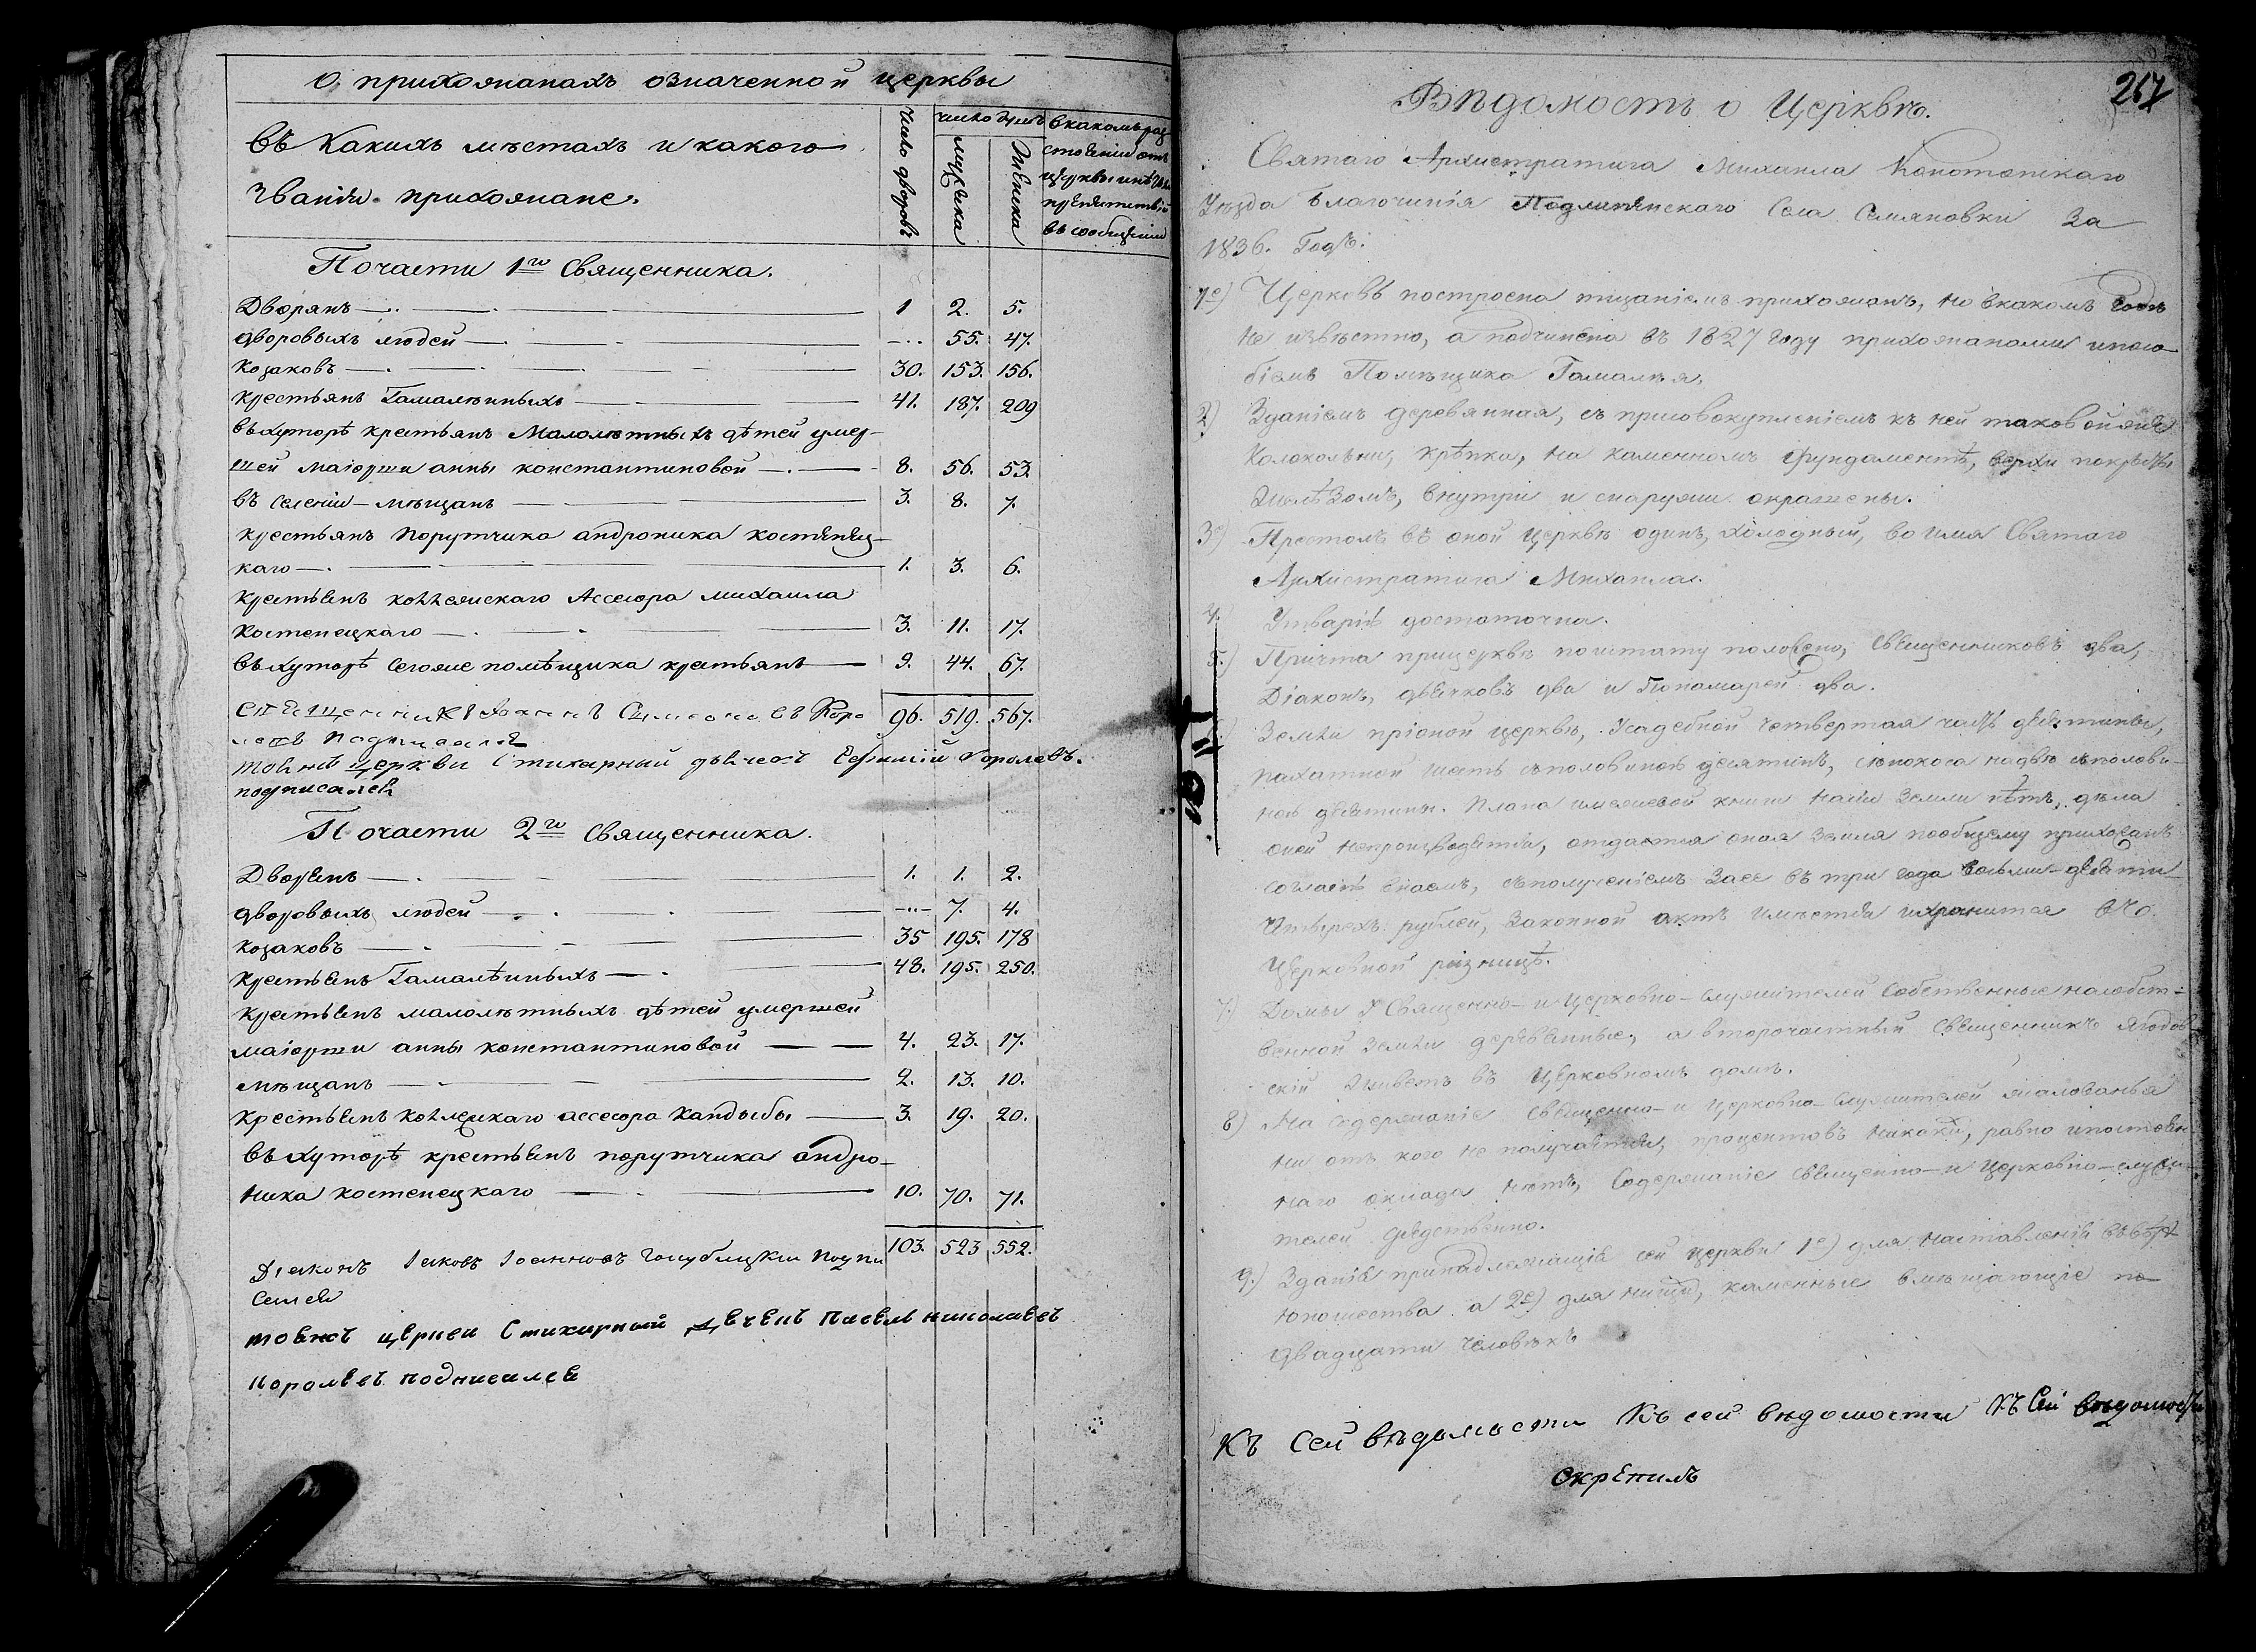 О прихожанахъ означенной церквы
Въ Какихъ мѣстахъ и какого
званія прихожане.
Число дворовъ
число душъ
мужеска
женска
вкакомъ раз
стояніи отъ
церквы инѣтъли
препятствій
въ сообщеніи
Почасти 1го Священника.
Дворянъ 1 2. 5.
дворовыхъ людей -.. 55. 47.
Козаковъ 30. 153. 156.
крестьянъ Гамалѣиныхъ 41. 187. 209
въхуторѣ крестьянъ Малолѣтныхъ дѣтей умер-
шей маіорши анны константиновой 8. 56. 53.
въ селеніи мѣщанъ 3. 8. 7.
крестьянъ Порутчика андроника костенец-
каго 1. 3. 6.
крестьянъ коллежскаго Ассесора михаила
Костенецкаго 3. 11. 17.
въхуторѣ сегоже помѣщика крестьянъ 9. 44. 67.
96. 519. 567.
Священникъ Іоаннъ Симоновъ Коро
левъ Подписался
тоей церкви Стихарный дьячокъ Королевъ.
подписался
Почасти 2го Священника.
Дворянъ 1. 1. 2.
дворовыхъ людей -..- 7. 4.
козаковъ 35 195. 178
Крестьянъ Гамалѣиныхъ 48. 195. 250.
крестьянъ малолѣтныхъ дѣтей умершей
маіорши анны константиновой 4. 23. 17.
мѣщанъ 2. 13. 10.
крестьянъ коллежскаго ассесора кандыбы 3. 19. 20.
въ хуторѣ крестьянъ порутчика андро-
ника костенецкаго 10. 70. 71.
103. 523 552.
Діаконъ Іаковъ Іоанновъ Голубицкій Подпи
сался
тоежъ церкви Стихарный дечекъ Павелъ николаевъ
королевъ подписалсе
267
Вѣдомость о Церквѣ.
Святаго Архистратига Михаила Конотопскаго
Уѣзда Благочинія Подлипенскаго Села Семяновки За
1836. Годъ.
1е) Церковь построена тщаніемъ прихожанъ, но вкакомъ годѣ
не извѣстно, а подчинена въ 1827 году прихожанами ипосо-
біемъ Помѣщика Гамалѣя.
2) Зданіемъ деревянная, съ присовокупленіемъ къ ней таковойже
Колокольни, крѣпка, на каменномъ фундаментѣ, верхи покрыты
Желѣзомъ, внутри и снаружи окрашены.
3е) Престолъ въ оной церквѣ одинъ, холодный, во имя Святаго
Архистратига Михаила.
4. Утварію достаточна.
5.) Причта прицерквѣ поштату положено, Священниковъ два,
Діаконъ, дьячковъ два и Пономарей два.
Земли пріоной церквѣ, Усадебной четвертая часть десятины,
пахатной шесть съполовиною десятинъ, сѣнокоса надвѣ съполови-
ною десятины. Плана имежевой книги насіи Земли нѣтъ, дѣла
оней непроизводится, отдается оная Земля пообщему прихожанъ
согласію внаемъ, съполученіемъ Заее въ три года восьми-десяти
четырехъ рублей, законной актъ имѣется ихранится въ
Церковной ризницѣ.
7.) Домы у Священно- и церковно-служителей Собственные насобст-
венной земли деревянные, а второчастный Священникъ
скій живетъ въ Церковномъ домѣ.
8) На содержаніе Священно- и Церковно-служителей жалованья
ни отъ кого не получается, процентовъ никакихъ, равно ипостоян-
наго оклада нѣтъ, Содержаніе Священно-и Церковно-служи-
телей средственно.
9.) Зданія принадлежащія сей церкви 1е) для наставленія ввѣрѣ
Юношества а 2е) для нищихъ, каменные вмѣщающіе по
двадцати человѣкъ
Къ Сей вѣдомости Къ сей вѣдомости Къ Сей вѣдомости
скрепилъ